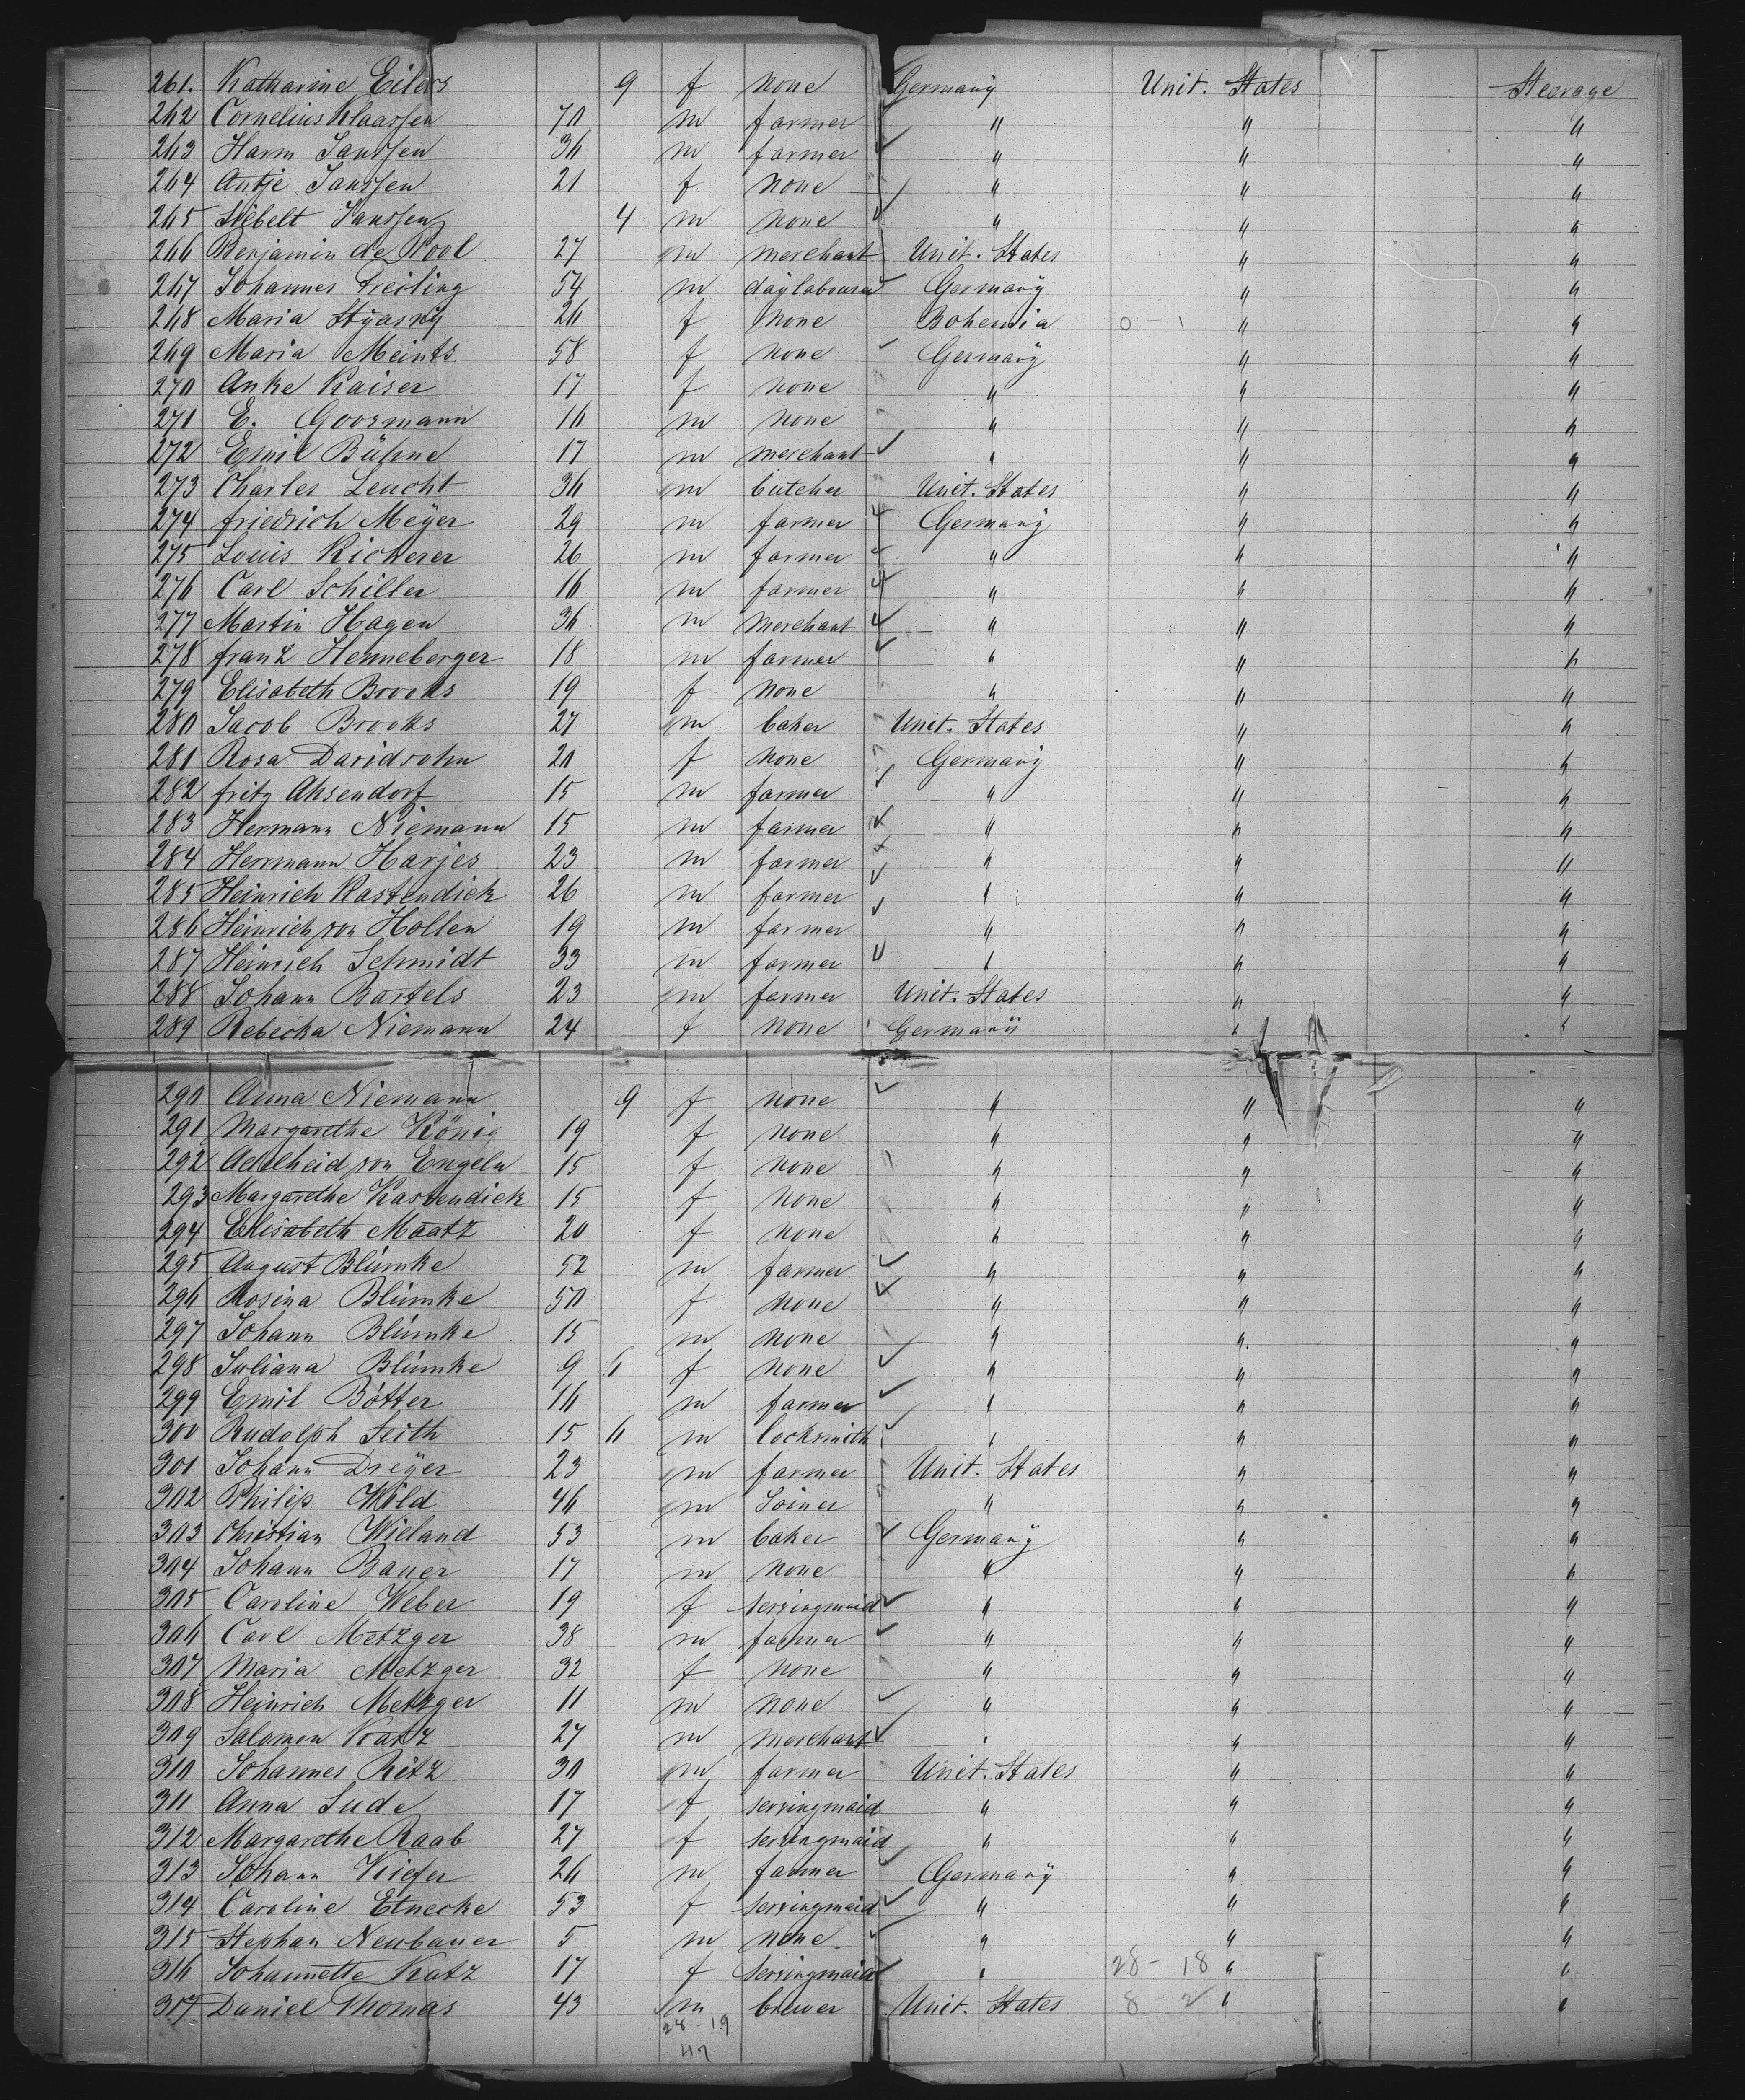 261. Katharine Eilers 9 f none Germany Unit. States Steerage
262 Cornelius Klaassen 70 m farmer " " "
263 Harm Janssen 36 m farmer " " "
264 Antje Janssen 21 f none " " "
265 Siebelt Janssen 4 m none " " "
266 Benjamin de Pool 27 m merchant Unit. States " "
267 Johannes Freiling 54 m daylabourer Germany " "
268 Maria Styasny 26 f none Bohemia 0 - 1 " "
269 Maria Meints 58 f none Germany " "
270 Anke Kaiser 17 f none " " "
271 E. Goosmann 16 m none " " "
272 Emil Bühne 17 m merchant " " "
273 Charles Leucht 36 m butcher Unit. States " "
274 friedrich Meÿer 29 m farmer Germany " "
275 Louis Richerer 26 m farmer " " "
276 Carl Schiller 16 m farmer " " "
277 Martin Hagen 36 m merchant " " "
278 franz Henneberger 18 m farmer " " "
279 Elisabeth Brooks 19 f none " " "
280 Jacob Brooks 27 m baker Unit. States " "
281 Rosa Davidsohn 20 f none Germany " "
282 fritz Ahsendorf 15 m farmer " " "
283 Hermann Niemann 15 m farmer " " "
284 Hermann Harjes 23 m farmer " " "
285 Heinrich Kastendiek 26 m farmer " " "
286 Heinrich von Hollen 19 m farmer " " "
287 Heinrich Schmidt 33 m farmer " " "
288 Johann Bartels 23 m farmer Unit. States " "
289 Rebecka Niemann 24 f none Germany " "
290 Anna Niemann 9 f none " " "
291 Margarethe König 19 f none " " "
292 Adelheid von Engeln 15 f none " " "
293 Margarethe Kastendiek 15 f none " " "
294 Elisabeth Maatz 20 f none " " "
295 August Blümke 52 m farmer " " "
296 Rosina Blümke 50 f none " " "
297 Johann Blümke 15 m none " " "
298 Juliana Blümke 9 6 f none " " "
299 Emil Bötter 16 m farmer " " "
300 Rudolph Seith 15 6 m locksmith " " "
301 Johann Dreÿer 23 m farmer Unit. States " "
302 Philip Wild 46 m Joiner " " "
303 Christian Wieland 53 m baker Germany " "
304 Johann Bauer 17 m none " " "
305 Caroline Weber 19 f servingmaid " " "
306 Carl Metzger 38 m farmer " " "
307 Maria Metzger 32 f none " " "
308 Heinrich Metzger 11 m none " " "
309 Salomon Katz 27 m merchant " " "
310 Johannes Ritz 30 m farmer Unit. States " "
311 Anna Lude 17 f servingmaid " " "
312 Margarethe Raab 27 f servingmaid " " "
313 Johann Kiefer 26 m farmer Germany " "
314 Caroline Etnecke 53 f servingmaid " " "
315 Stephan Neubauer 5 m none " " "
316 Johannette Katz 17 f servingmaid " 28 - 18 " "
317 Daniel Thomas 43 m brewer Unit. States 8 - 2 " "
28 - 19